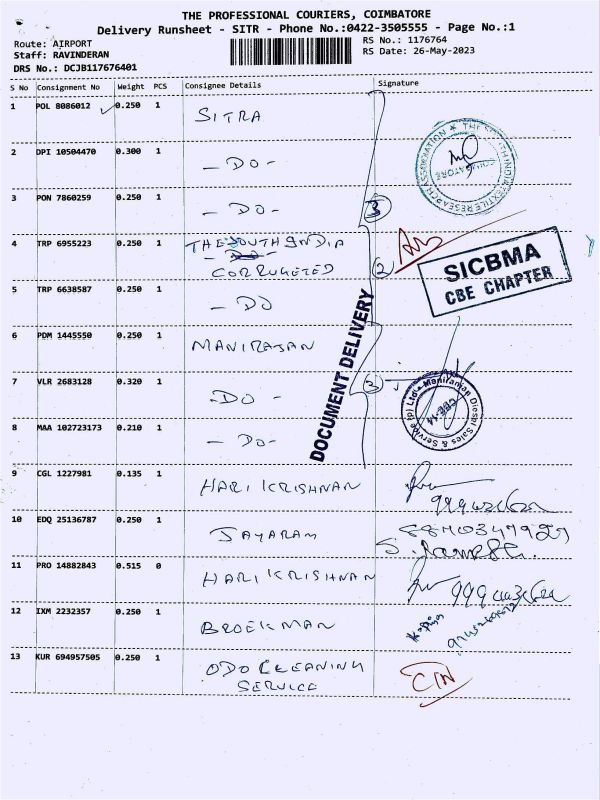 THE PROFESSIONAL COURIERS, COIMBATORE
Delivery Runsheet - SITR - Phone No.:0422-3505555 - Page No.:1
Route: AIRPORT
Staff: RAVINDERAN
DRS No.: DCJB117676401
RS No.: 1176764
RS Date: 26-May-2023
S No Consignment No Weight PCS Consignee Details Signature
1 POL 8086012 0.250 1 SITRA
2 DPI 10504470 0.300 1 - DO -
3 PON 7860259 0.250 1 - DO -
3
4 TRP 6955223 0.250 1 THE SOUTH INDIA
CORRUGETED
2
SICBMA
CBE CHAPTER
5 TRP 6638587 0.250 1 - DO
DOCUMENT DELIVERY
6 PDM 1445550 0.250 1 MANIRAJAN
7 VLR 2683128 0.320 1 - DO -
8 MAA 102723173 0.210 1 - DO -
9 CGL 1227981 0.135 1 HARI KRISHNAN
10 EDQ 25136787 0.250 1 JAYARAM
11 PRO 14882843 0.515 0 HARI KRISHNAN
12 IXM 2232357 0.250 1 BROEKMAN
13 KUR 694957505 0.250 1 ODO CLEANING
SERVICE